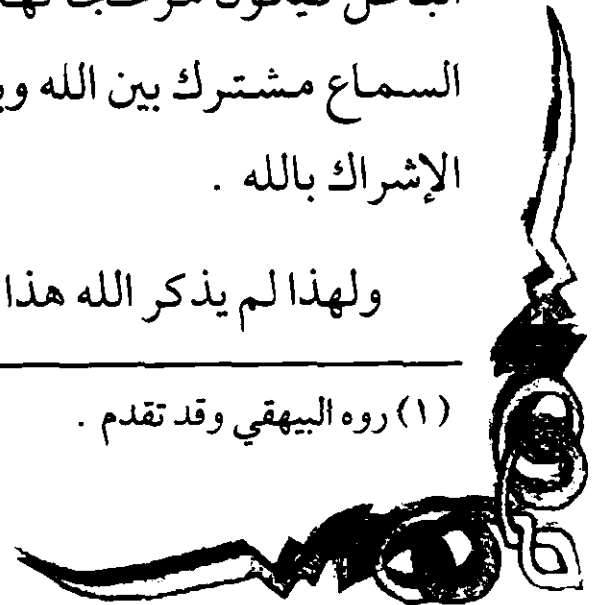 السماع مشترك بين الله
الإشراك بالله .
ولهذا لم يذكر الله هذا
(١) روه البيهقي وقد تقدم .